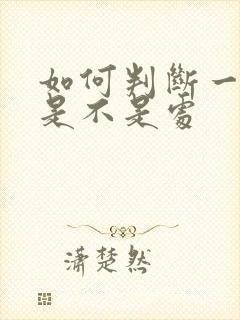 如何判斷一
是不是處
瀟楚然